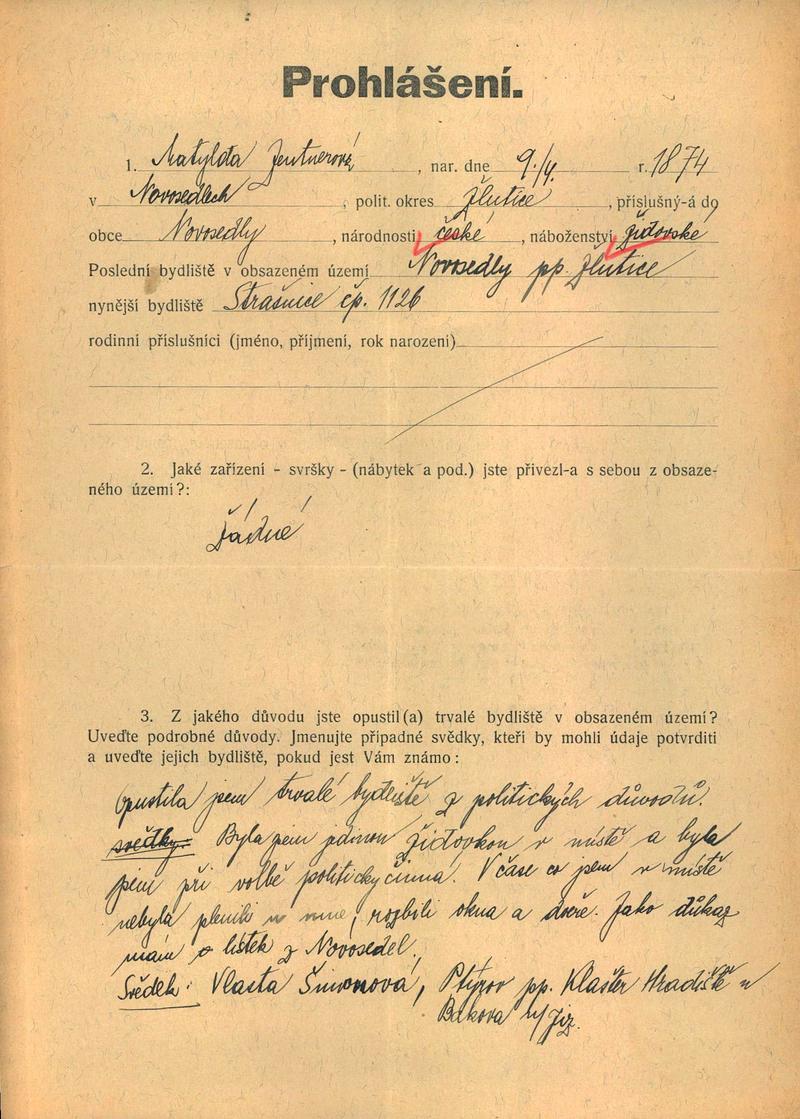 Prohlášení.
1. Matylda Zentnerová, nar. dne 9./4. r. 1874
v Novosedlech, polit. okres Žlutice, příslušný-á do
obce Novosedly, národnosti české, náboženství židovské
Poslední bydliště v obsazeném území Novosedly pp. Žlutice
nynější bydliště Strašnice čp. 1126
rodinní příslušníci (jméno, příjmení, rok narození)
2. Jaké zařízení - svršky - (nábytek a pod.) jste přivezl-a s sebou z obsaze-
ného území?:
Žádné
3. Z jakého důvodu jste opustil(a) trvalé bydliště v obsazeném území?
Uveďte podrobné důvody. Jmenujte případné svědky, kteří by mohli údaje potvrditi
a uveďte jejich bydliště, pokud jest Vám známo:
Opustila jsem trvalé bydliště z politických důvodů.
svědky Byla jsem jedinou židovkou v místě a byla
jsem při volbě politicky činná. V čase co jsem v místě
nebyla plenili u mne, rozbili okna a dveře. Jako důkaz
mám lístek z Novosedel.
Svědek: Vlasta Šimonová, Ptýrov pp. Klášter Hradiště u
Bakova n/Jiz.